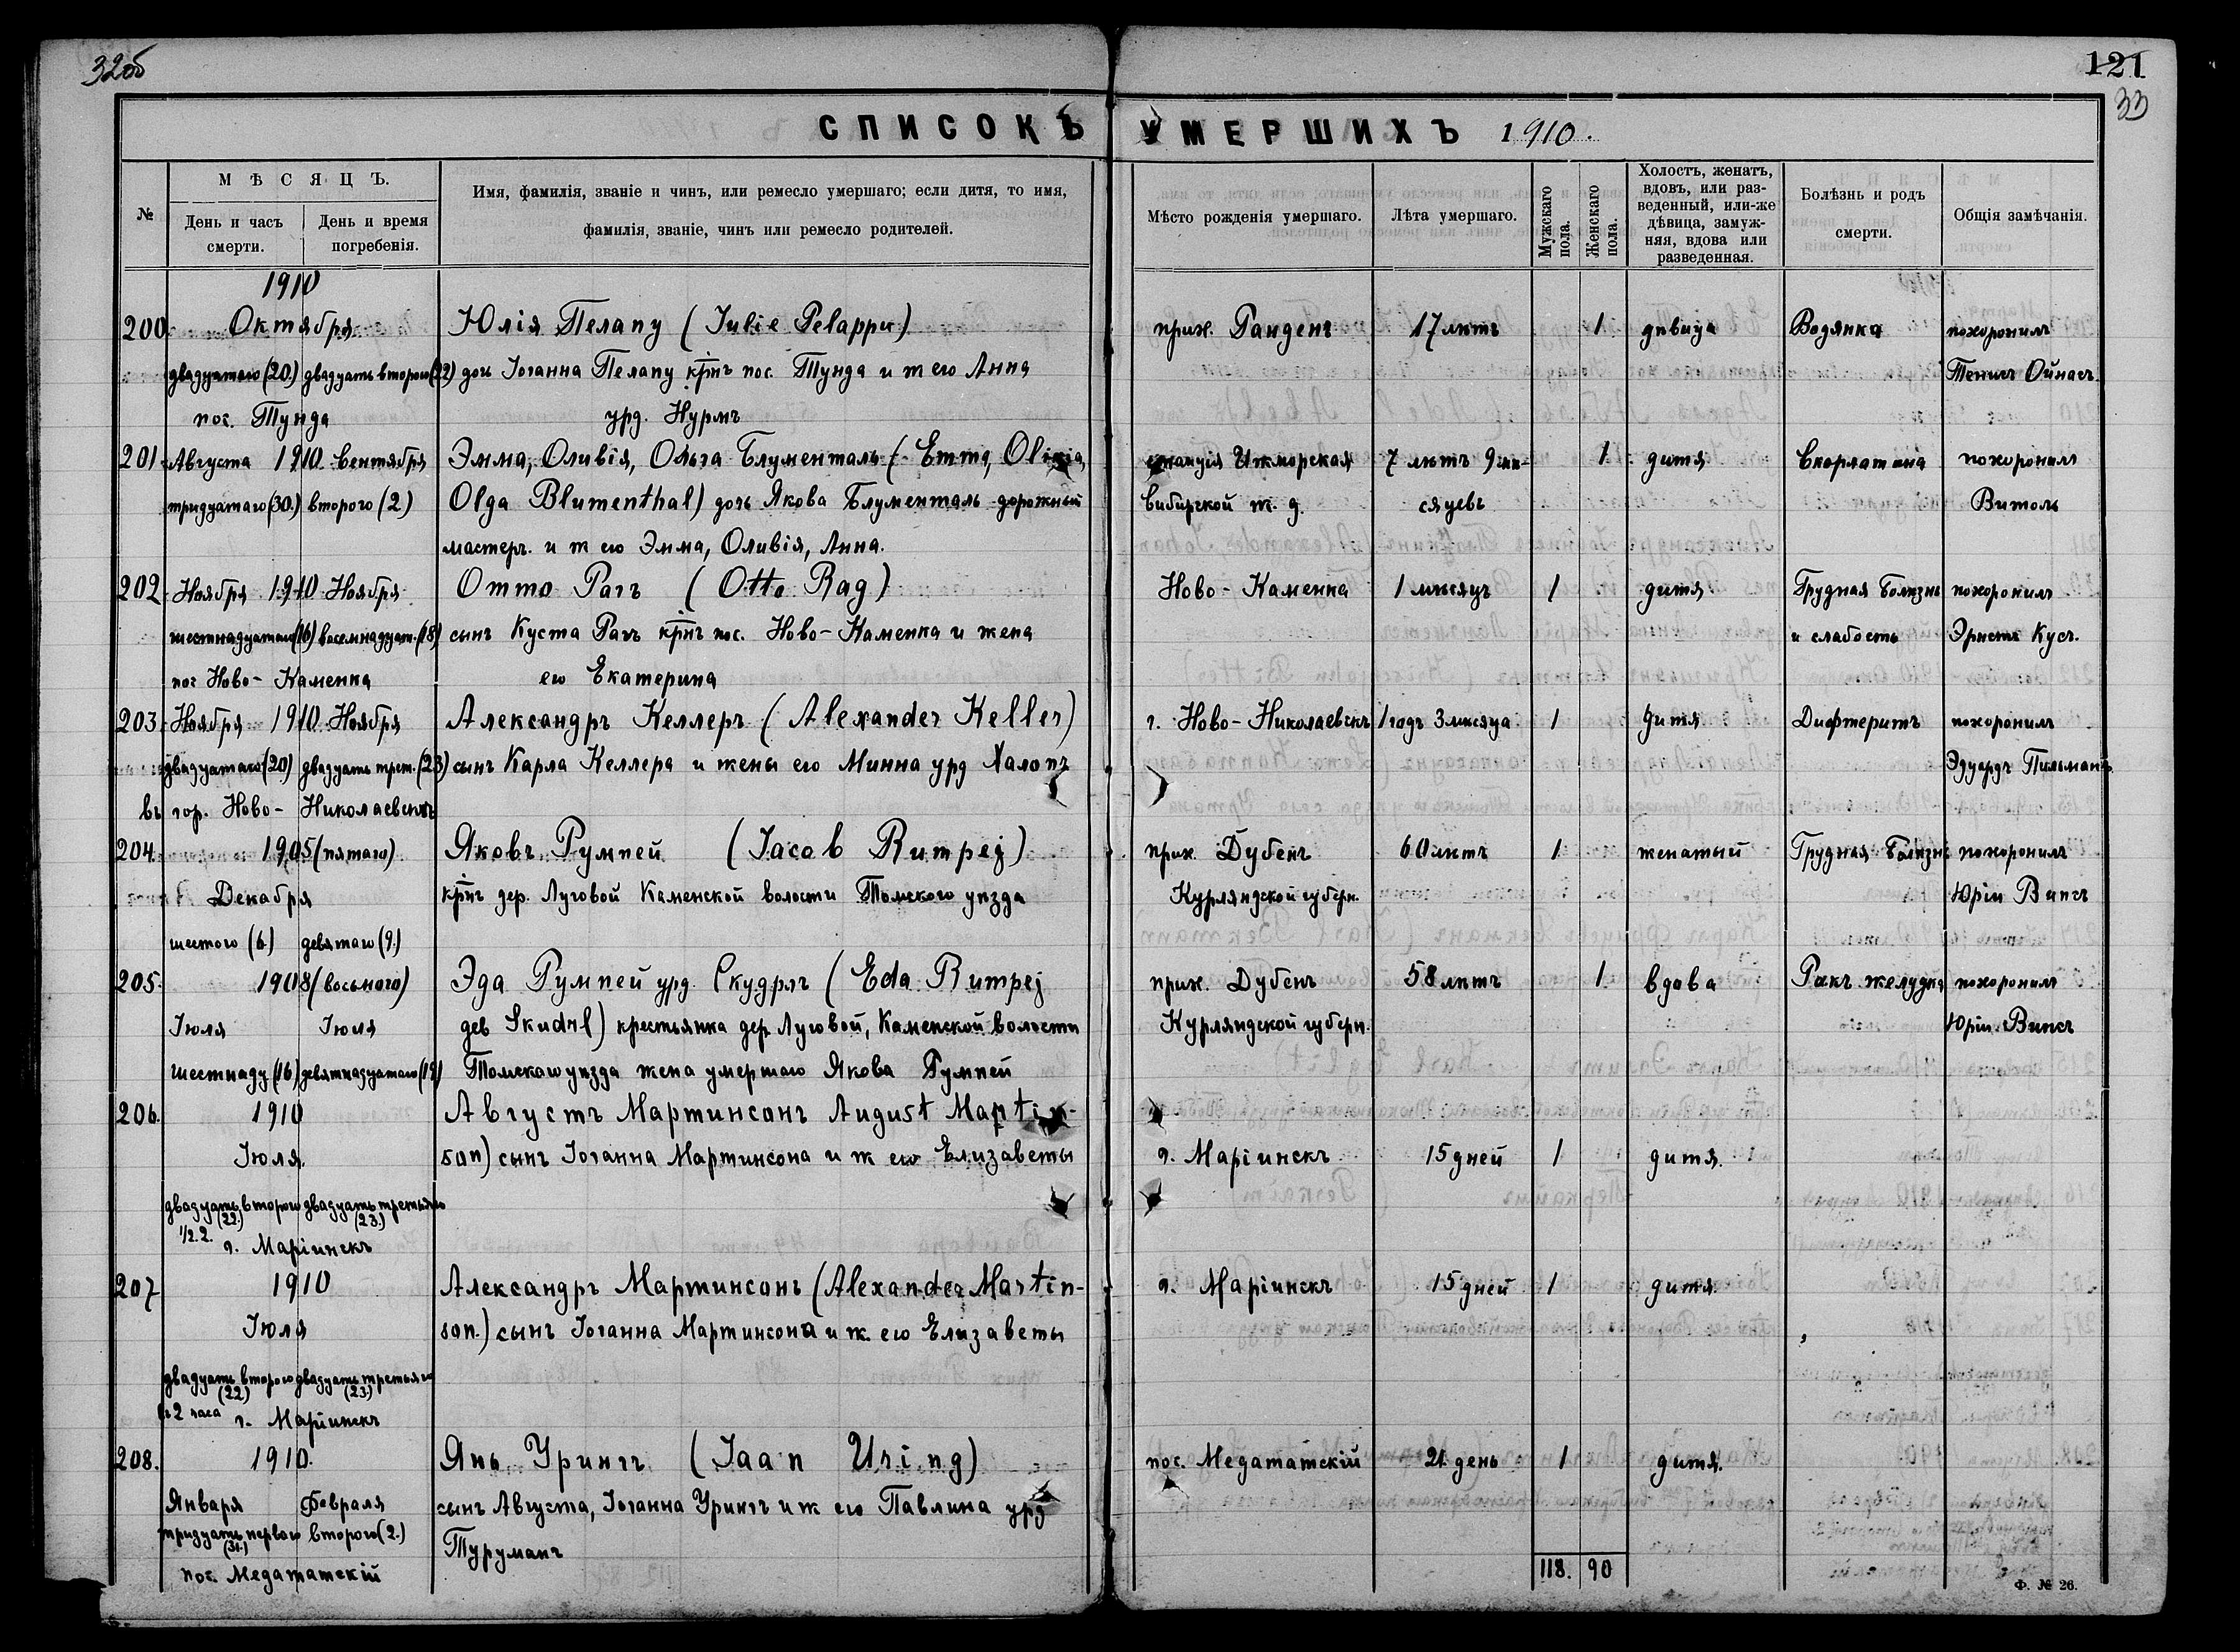 32об
121
33
СПИСОКЪ УМЕРШИХЪ 1910.
№
МѢСЯЦЪ.
День и часъ смерти.
День и время погребенія.
Имя, фамилія, званіе и чинъ, или ремесло умершаго; если дитя, то имя,
фамилія, званіе, чинъ или ремесло родителей.
Мѣсто рожденія умершаго.
Лѣта умершаго.
Мужскаго пола.
Женскаго пола.
Холость, женатъ,
вдовъ, или раз-
веденный, или-же
дѣвица, замуж-
няя, вдова или
разведенная.
Болѣзнь и родъ
смерти.
Общія замѣчанія.
1910
200 Октября Юлія Пелапу (Iulie Pelappu) прих. Ранденъ 17 лѣтъ 1 дѣвица Водянка похоронилъ
двадцатаго (20.) двадцать второго (22) дочь Іоганна Пелапу крѣнъ пос. Тунда и ж его Анна Тенисъ Ойнасъ.
пос. Тунда урд. Нурмъ
201 Августа 1910 Сентября Эмма, Оливія, Ольга Блументаль (Emma, Olivia, станція Ижморская 7 лѣтъ 9 мѣ- 1 дитя Скорлатина похоронилъ
тридцатаго (30.) второго (2.) Olga Blumenthal) дочь Якова Блументаль дорожный Сибирской ж. д. сяцевъ Витоль
мастеръ. и ж его Эмма, Оливія, Анна.
202 Ноября 1910 Ноября Отто Рагъ (Otto Rag) Ново-Каменка 1 мѣсяцъ 1 дитя Грудная болѣзнь похоронилъ
шестнадцатаго (16) восемнадцат. (18) сынъ Куста Рагъ крѣнъ пос. Ново-Каменка и жена и слабость Эрнстъ Кусъ.
пос Ново-Каменка его Екатерина
203. Ноября 1910 Ноября Александръ Келлеръ (Alexander Keller) г. Ново-Николаевскъ 1 годъ 3 мѣсяца 1 дитя Дифтеритъ похоронилъ
двадцатаго (20) двадцать трет. (23) сынъ Карла Келлера и жены его Минна урд Халопъ Эдуардъ Пильманъ.
въ гор. Ново-Николаевскъ
204. 1905 (пятаго) Яковъ Румпей (Iacob Rumpej) прих. Дубенъ 60 лѣтъ 1 женатый Грудная болѣзнь похоронилъ
Декабря крѣнъ дер. Луговой Каменской волости Томского уѣзда Курляндской губерн. Юріи Випсъ
шестого (6.) девятаго (9.)
205. 1908 (восьмого) Эда Румпей урд. Скудръ (Eda Rumpej прих. Дубенъ 58 лѣтъ 1 вдова Ракъ желудка похоронилъ
Іюля Іюля дев Skudrl) крестьянка дер Луговой, Каменской волости Курляндской губерн. Юріи Випсъ
шестнадц (16) девятнадцатаго (19) Томскаго уѣзда жена умершаго Якова Румпей
206. 1910 Августъ Мартинсонъ August Martin-
Іюля. son) сынъ Іоганна Мартинсона и ж его Елизаветы г. Маріинскъ 15 дней 1 дитя.
двадцать второго (22.) двадцать третьяго (23.)
1/2 2. г. Маріинскъ
207 1910 Александръ Мартинсонъ (Alexander Martin- г. Маріинскъ 15 дней 1 дитя.
Іюля son.) сынъ Іоганна Мартинсона и ж. его Елизаветы
двадцать второго (22) двадцать третьяго (23)
2 часа г. Маріинскъ
208. 1910. Янъ Урингъ (Iaan Uring) пос. Медататскій 21 день 1 дитя.
Января Февраля сынъ Августа, Іоганна Урингъ и ж его Павлина урд
тридцать перваго (31.) второго (2.) Туруманъ
пос. Медататскій 118. 90
Ф. № 26.